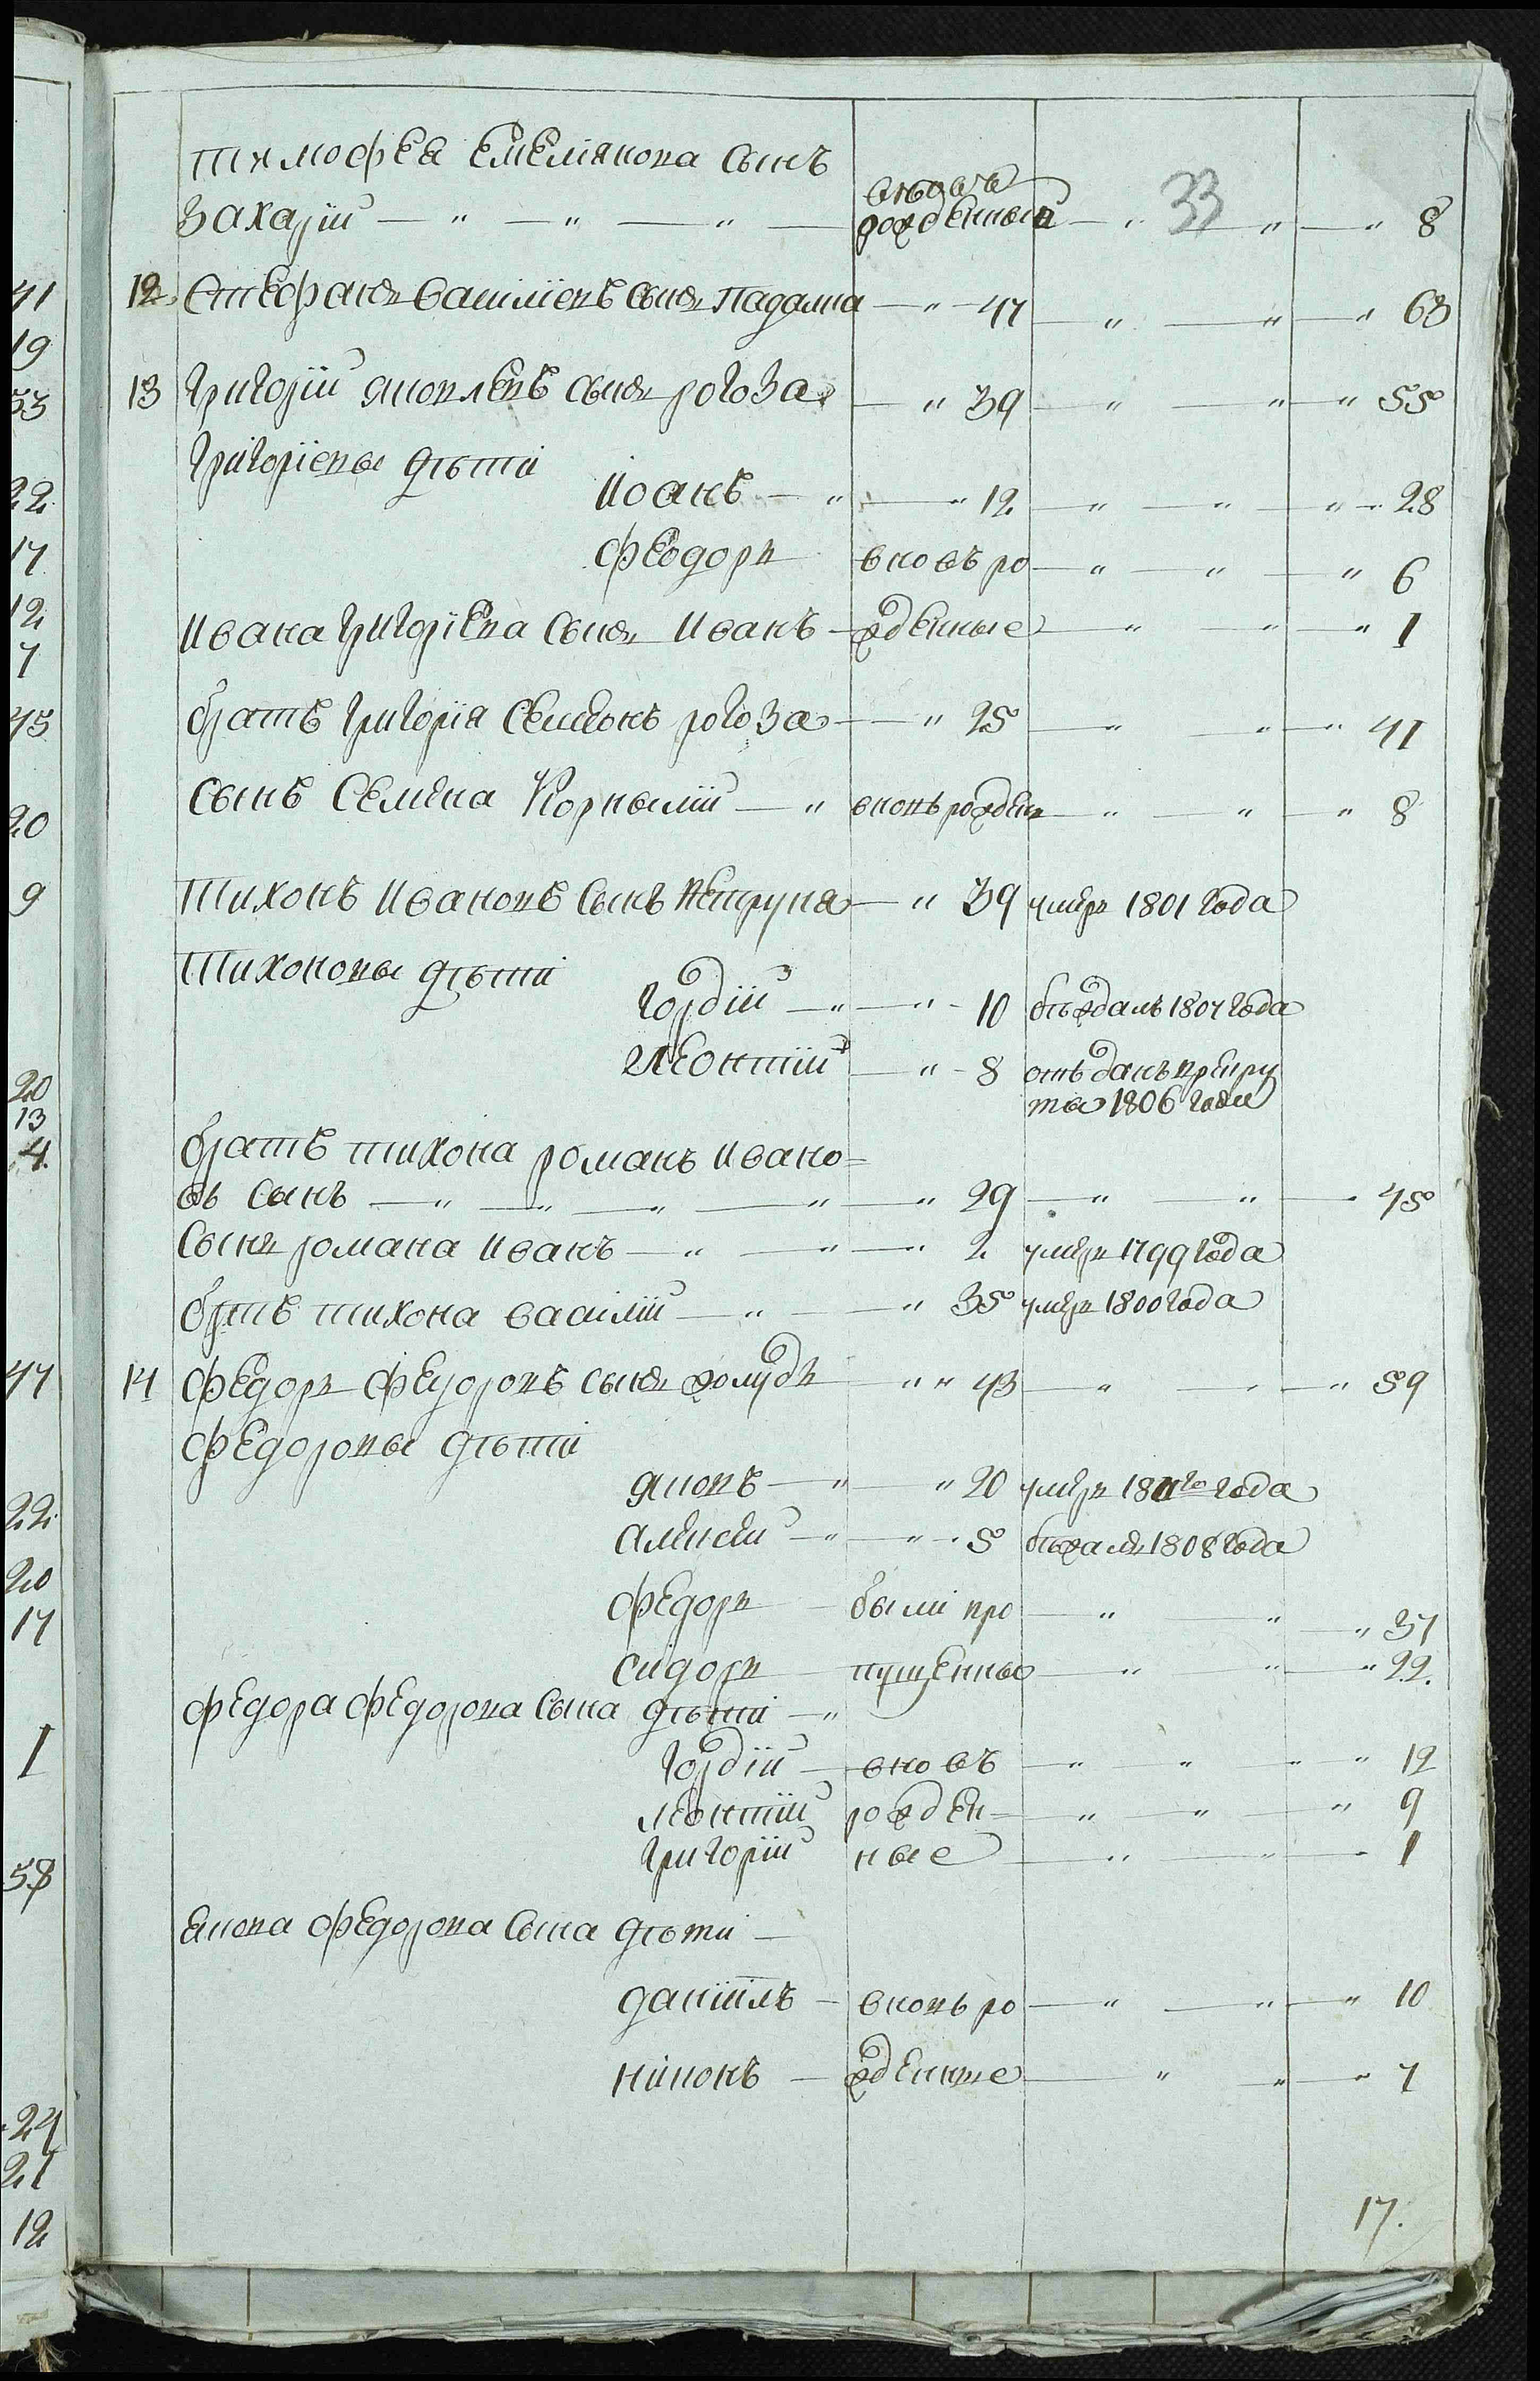 41
19
33
22
17
12
7
45
20
9
20
13
4.
47
22
20
17
1
58
24
21
12
33
Тимофея Емелiянова Сынъ
Захарiй — " — " — " — вновь рожденный — " — " — " 8
12 Стефанъ Василiевъ Сынъ Падалка — " 47 — " — " — " 63
13 Григорiй Яковлевъ Сынъ рогоза — " 39 — " — " — " 55
Григорiевы дѣти
Иоанъ — " — " 12 — " — " — " 28
Феодоръ вновъ ро — " — " — " 6
Ивана Григорiева Сынъ Иванъ — жденные — " — " — " 1
братъ Григорiя Семионъ рогоза — " 25 — " — " — " 41
Сынъ Семена Корнылiй — " вновъ рожден — " — " — " 8
Тихонъ Ивановъ Сынъ — " 39 умеръ 1801 Года
Тихоновы дѣти
Гордiй — " — " 10 бѣждалъ 1807 Года
Леонтiй — " 8 отъданъ врекру
та 1806 Году
братъ тихона романъ Ивано=
въ Сынъ — " — " — " — " — " 29 — " — " — " 45
Сынъ романа Иванъ — " — " — " 2 умеръ 1799 Года
братъ тихона Василiй — " — " 35 умеръ 1800 Года
14 Федоръ Федоровъ Сынъ жолудъ " " 43 — " — " — " 59
Федоровы дѣти
Яковъ — " — " 20 умеръ 1811го года
Алексѣй — " — " 5 бѣжалъ 1808 Года
Федоръ — были про — " — " — " 37
Сидоръ — пущенные — " — " — " 22.
Федора Федорова Сына дѣти — "
Гордiй — вновъ — " — " — " 12
Леонтiй рожден — " — " — " 9
Григорiй ные — " — " — " 1
Якова Федорова Сына дѣти —
Данiилъ — вновъ ро — " — " — " 10
Никонъ — жденные — " — " — " 7
17.